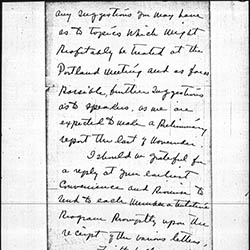 any suggestions you may have
as to topics which might
profitably be treated at the
Portland Meeting and as far as
possible, further suggestions
as to speakers, as we are
expected to make a Preliminary
report the last of November
I should be grateful for
a reply at your earliest
convenience and promise to
send to each member a tentative
Program promptly upon the
receipt of the various letters